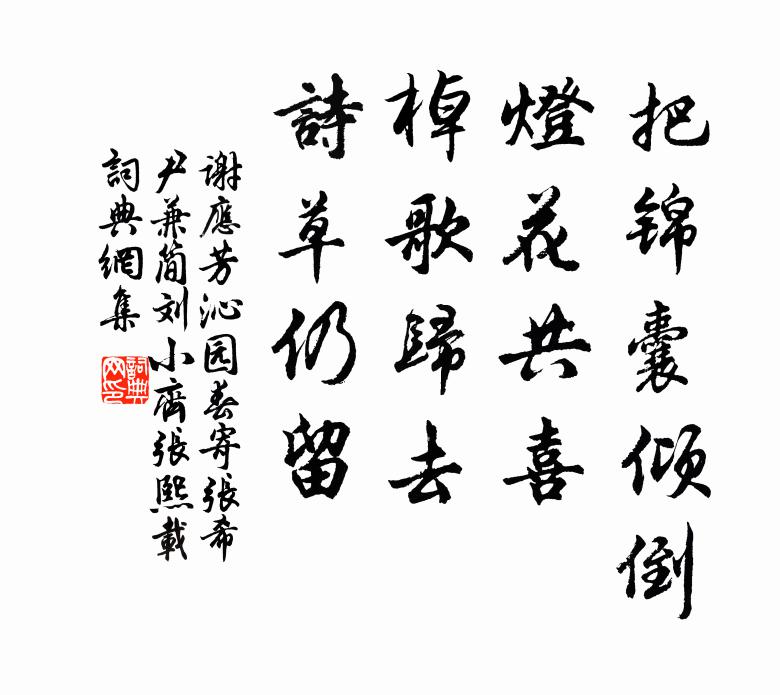 把锦囊倾倒
燈花共喜
棹歌歸去
詩草仍留
谢應芳沁园春寄張希
尹兼简刘小齊張熙載
詞典網集
詞典
网印